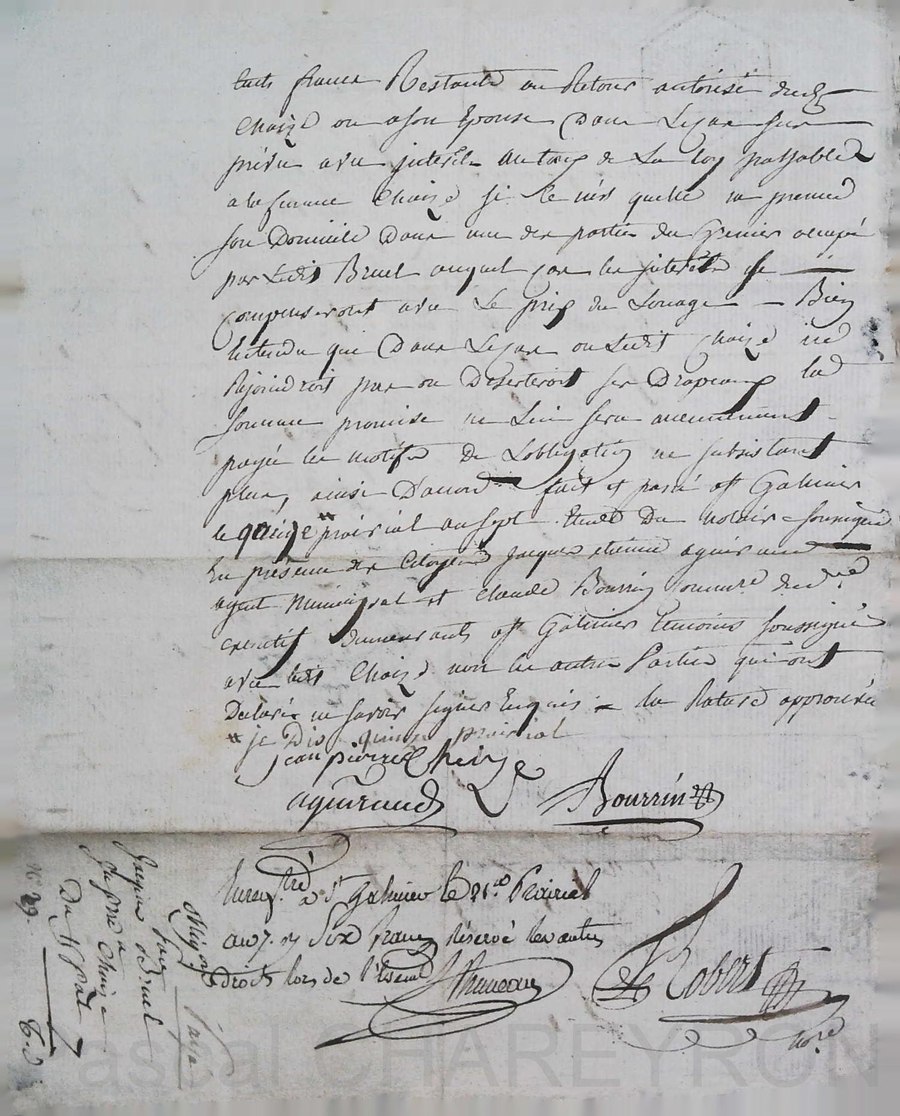 cents francs Restants au Retour autorisé dudt
Chaize ou a son Epouse Dans Le Cas sus
prévu avec intérêts au taux de La loy payables
a la femme Chaize si ce nest quelle ne prenne
son Domicile Dans une des parties du Grenier occupé
par Ledit Bruel auquel Cas les intérêts se
Compenseront avec Le prix du Louage — Bien
Entendu que Dans Le Cas ou Ledit Chaize ne
Rejoindroit pas ou Déserteroit ses Drapeaux la
somme promise ne Lui sera aucunement
payée les motifs De Lobligation ne subsistant
plus, ainsi D'accord fait et passé a St Galmier
le quinze prairial an Sept. Etude Du notaire soussigné
En présence des Citoyens Jacques etienne
agent Municipal et Claude Bourrin
executif demeurants a St Galmier témoins soussignés
avec ledit Chaize non les autres Parties qui ont
Déclaré ne savoir signer Enquis — la Rature approuvée
# je Dis quinze prairial
jean pierre Cheize
Bourrin
Enregistré a St Galmier le 21 Prairial
an 7. Six francs réservé les autres
Droits lors de
Robert
nore
Obligon
Pour
Jacques Bruel
a
Chaize
Du 15 pral 7
No. 89.